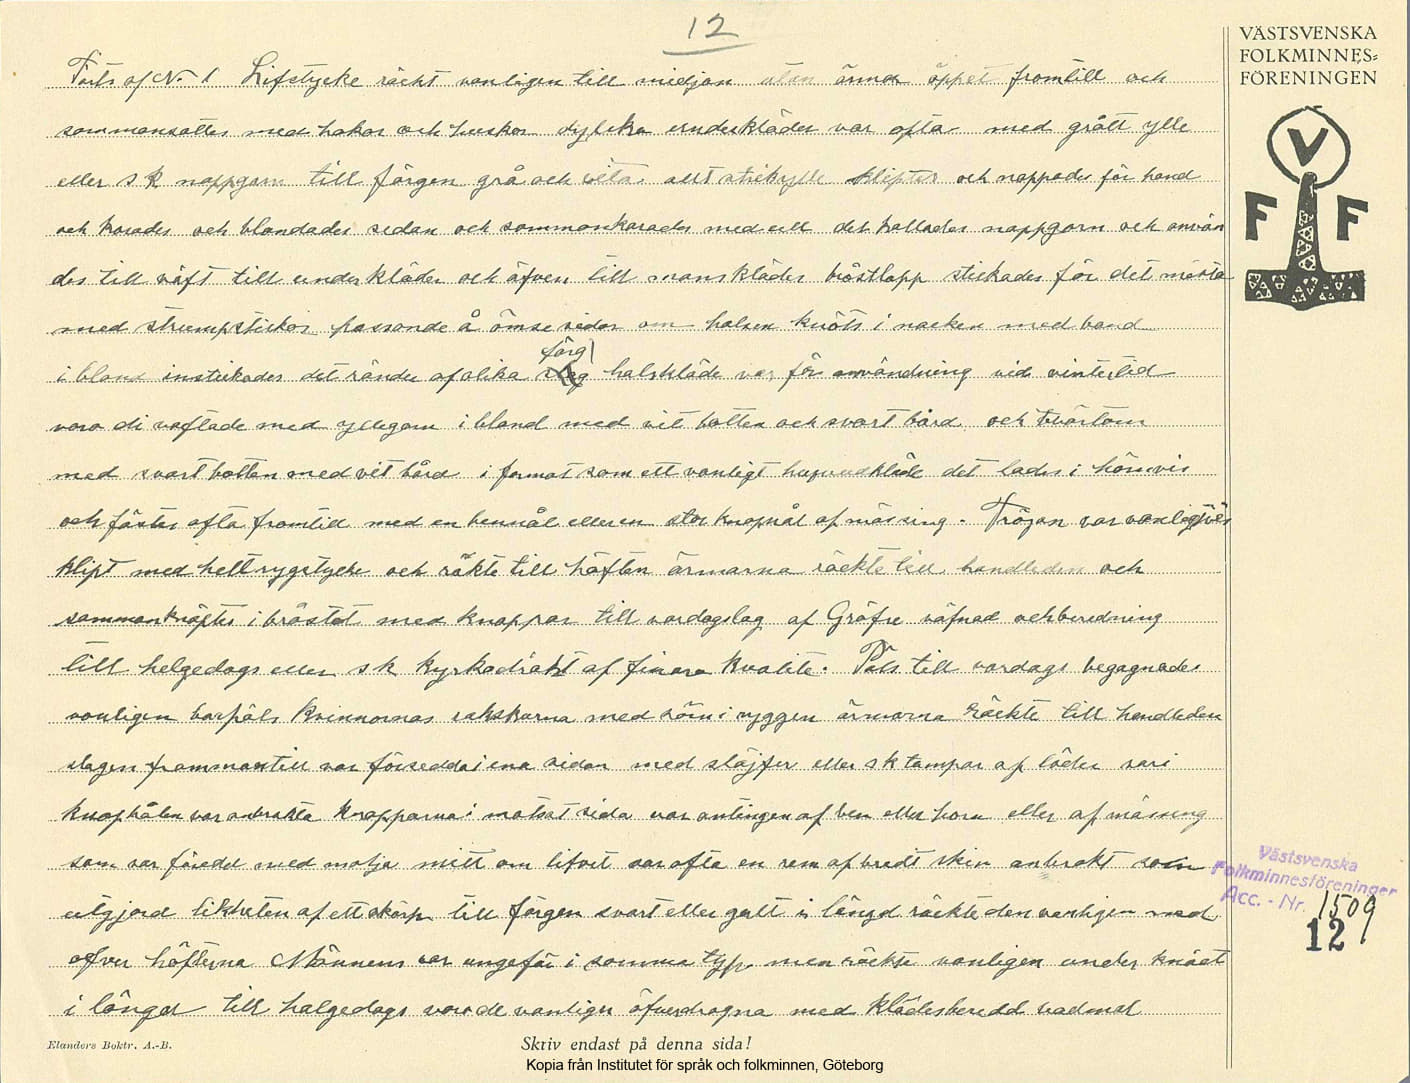 12
VÄSTSVENSKA
FOLKMINNES=
FÖRENINGEN
V
F F
Forts af No 1 Lifstycke räckt vanligen till midjan utan ärmar öppet framtill och
sammansattes med hakar och hyskor dylika underkläder var ofta med grått ylle
eller s k noppgarn till färgen grå och vita. allt klipptes och noppades för hand
och karades och blandades sedan och sammankarades med ull det kallades noppgarn och använ
des till väft till underkläder och äfven till manskläder bröstlapp stickades för det mästa
med strumpstickor passande å ömse sidor om halsen knöts i nacken med band
i bland instickades det ränder af olika färg halskläde var för användning vid vintertid
voro di vaftade med yllegarn i bland med vit botten och svart bård och tvärtom
med svart botten med vit bård i format som ett vanligt huvudkläde det lades i hörnvis
och fästes ofta framtill med en bennål eller en stor knopnål af mässing. Tröjan var vanligtvis
klipt med helt rygstycke och räkte till höften ärmarna räckte till handleden och
sammanknäptes i bröstet med knappar till vardagslag af Gröfre väfnad och beredning
till helgedags eller s k kyrkodräkt af finare kvalite. Päls till vardags begagnades
vanligen barpäls kvinnornas med söm i ryggen ärmarna räckte till handleden
slagen framman till var försedda i ena sidan med släjfer eller s k tampar af läder vari
knaphålen var anbrakta knapparna i motsat sida var antingen af ben eller horn eller af mässing
som var försedd med matja mitt om lifvet var ofta en rem af bredt skin anbrakt som
utgjord likheten af ett skärp till färgen svart eller gult i längd räckte den vanligen ned
öfver höfterna Männens var ungefär i samma typ, men räckte vanligen under knäet
i längd till helgedags voro de vanliga öfverdragna med klädesberedd vadmal
Västsvenska
Folkminnesföreningen
Acc. - Nr. 1509
12
Elanders Boktr. A.-B.
Skriv endast på denna sida!
Kopia från Institutet för språk och folkminnen, Göteborg